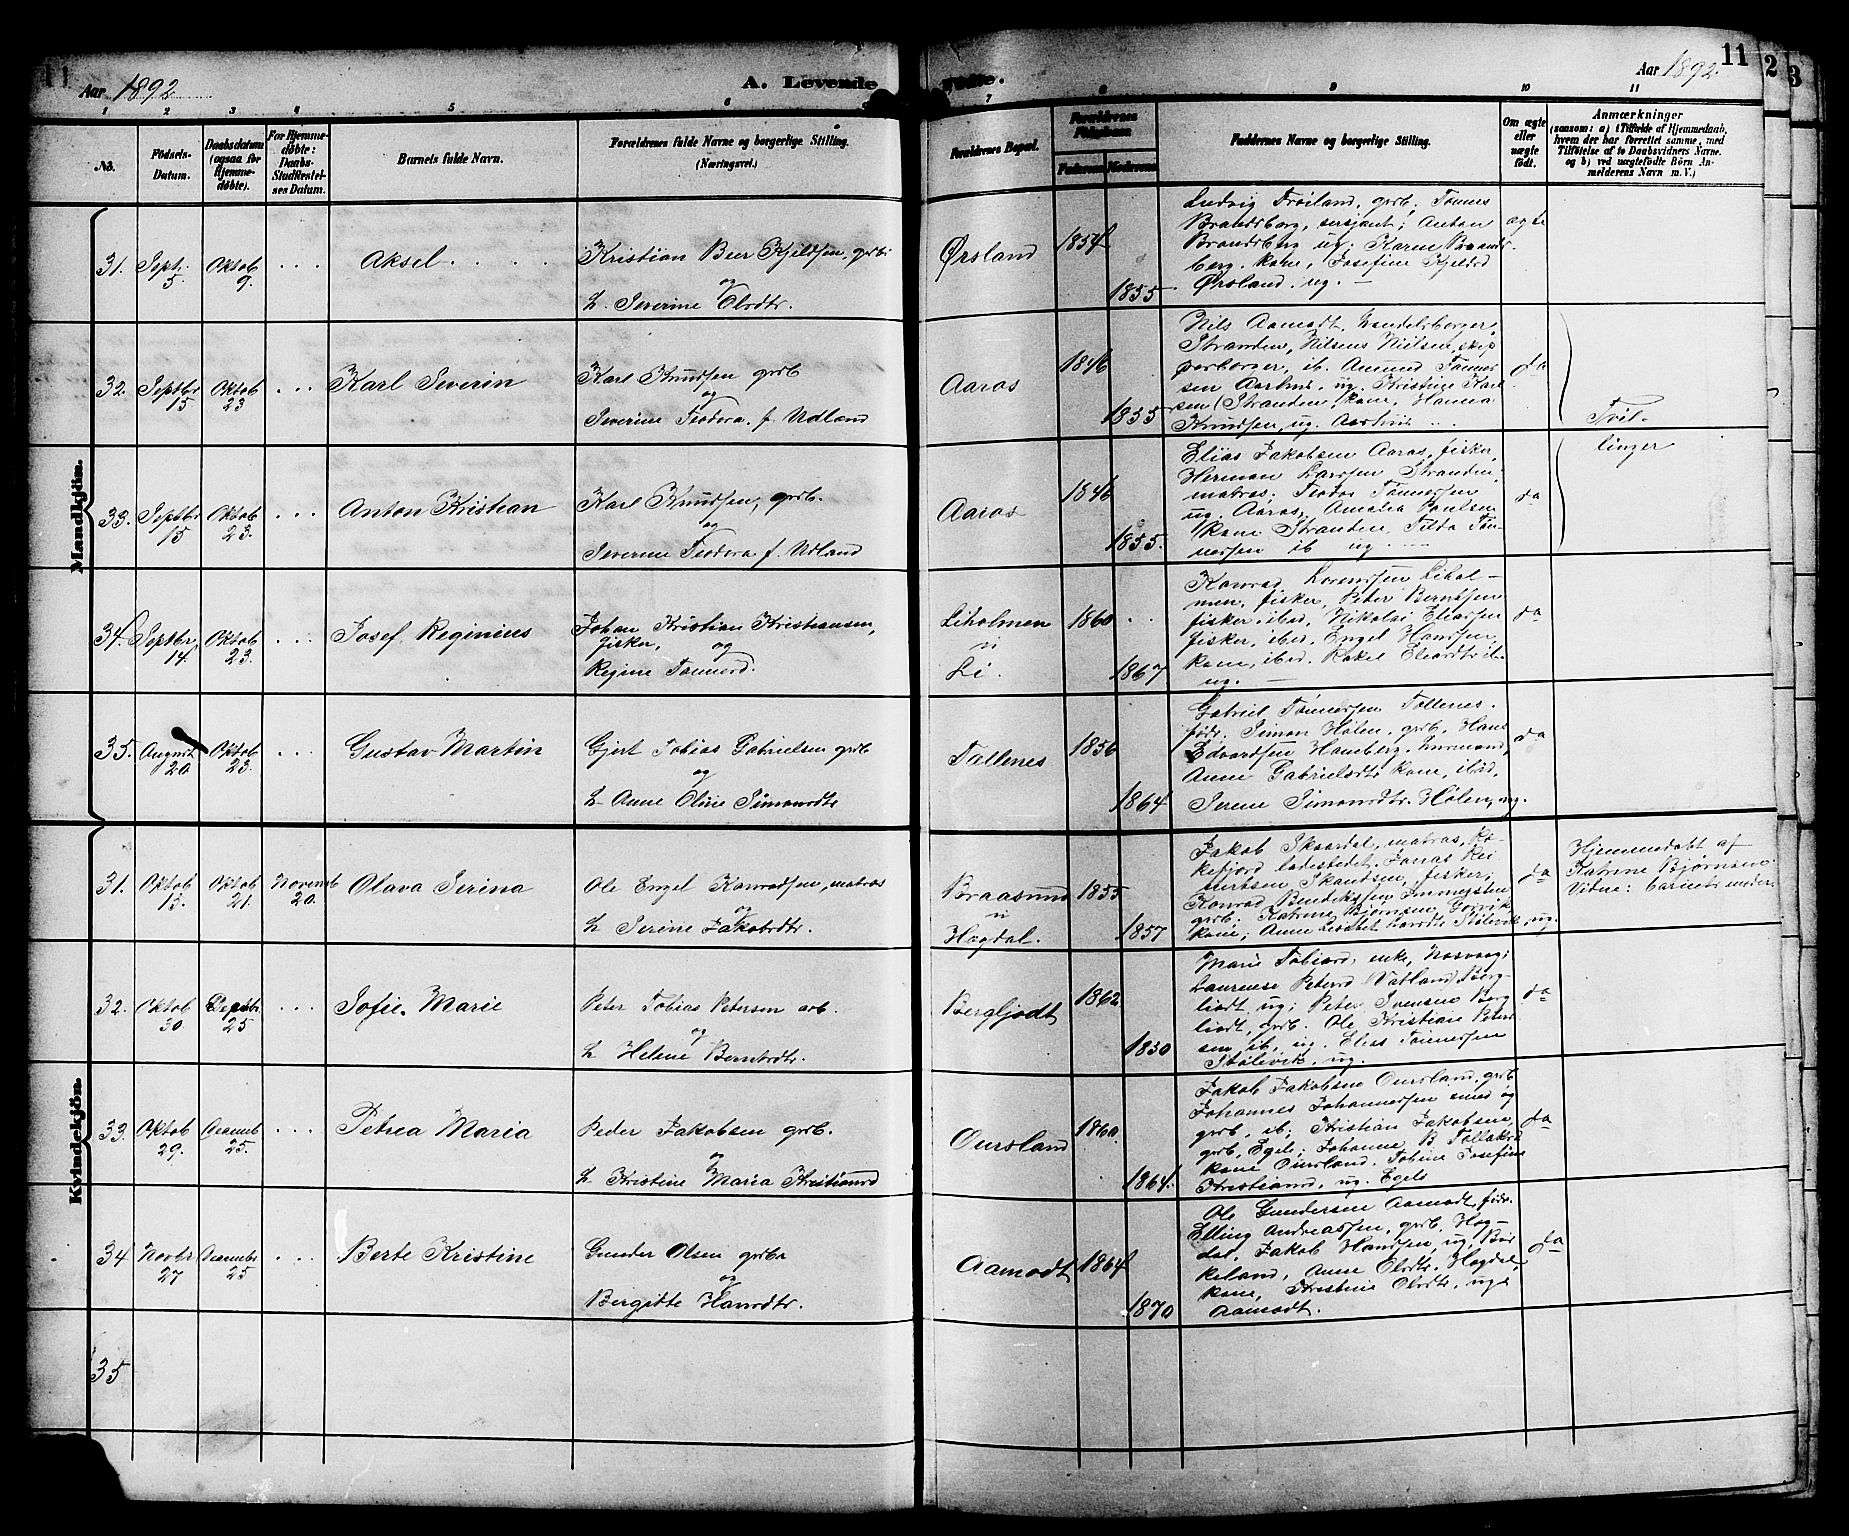 11
Aar 1892
A. Levende
Fødte.
Aar 1892.
11
2
3
1
2
3
4
5
6
7
8
9
10
11
No.
Fødsels-
Datum.
Daabsdatum
(ogsaa for
Hjemme-
døbte).
For Hjemme-
døbte:
Daabs-
Stadfæstel-
ses Datum.
Barnets fulde Navn.
Forældrenes fulde Navne og borgerlige Stilling.
(Næringsvei.)
Forældrenes Bopæl.
Forældrenes
Fødselsaar.
Faderens
Moderens
Faddernes Navne og borgerlige Stilling.
Om ægte
eller
uægte
født.
Anmærkninger
(saasom: a) i Tilfælde af Hjemmedaab,
hvem der har forrettet samme, med
Tilføielse af to Daabsvidners Navne.
og b) ved uægtefødte Børn An-
melderens Navn m. V.)
Mandkjön.
31.
Septr.
5
Oktob
9.
Aksel
Kristian Beer Kjeldsen, grb.
og
h. Severine Olsdtr.
Ørsland
1854
1855
Ludvig Frøiland, grb. Tønnes
Brandsberg, sersjant; Anton
Brandsberg ug; Karen Brands-
berg. kone, Josefine Kjeldsd
Ørsland. ug. —
ægte
32.
Septbr
15
Oktob
23
Karl Severin
Karl Knudsen grb
og
Severine Teodora f. Udland
Aaros
1846
1855
Nils Aamodt, Handelsborger,
Stranden, Nilsens Nilsen, skip
perborger, ib. Amund Tønnes-
sen Aarhus, ug. Kristine Karl
sen (Stranden) kone, Hanna
Knudsen, ug. Aarhus
da
Tvil-
33.
Septbr
15
Oktob
23.
Anton Kristian
Karl Knudsen, grb.
og
Severine Teodora f. Udland
Aaros
1846
1855.
Elias Jakobsen Aaros, fisker,
Herman Larssen Stranden
matros. Teodor Tønnessen
ug. Aaros, Amalia Poulsen
kone Stranden, Tilda Tøn-
nessen ib ug.
da
linger
34.
Septbr
14.
Oktob
23.
Josef Reginius
Johan Kristian Kristiansen,
fisker, og
Regine Tønnesd.
Liholmen
i
Li.
1860
1867
Konrad Lorentsen Lihol-
men, fisker, Peter Berntsen
fisker, ibid, Nikolai Eliassen
fisker, ibid. Engel Hansen,
kone, ibid. Rakel Eliasdtr ib
ug. —
da
35.
August
20
Oktob
23.
Gustav Martin
Gjert Tobias Gabrielsen grb
og
h. Anne Oline Simonsdtr
Tallenes
1856
1864
Gabriel Tønnessen Tallenes.
fødr. Simon Holen, grb, Hans
Edvardsen Hamberg,
Anne Gabrielsdtr kone, ibid,
Serene Simonsdtr. Holen, ug.
da
Kvindekjön.
31.
Oktob
15.
Oktob
21.
Novemb
20.
Olava Serina
Ole Engel Konradsen, matros
og
h Serine Jakobsdtr.
Braasund
i
Hogdal.
1855
1857
Jakob Skaardal, matros, Ra-
kefjord ladestedet. Jonas Rei
nertsen Skaudsen, fisker;
Konrad Bendiksen
grb. Katrine Bjørnsen,
kone; Anne Lisabet Larsdtr Stølevik, ug.
da
Hjemmedøbt af
Katrine Bjørnsen.
Vidne: barnets moder.
32.
Oktob
30.
Decbr.
25
Sofie. Marie
Peter Tobias Petersen arb.
og
h Helene Berntsdtr.
Bergljodt
1862
1850
Marie Tobiasd. enke, Nosvaag;
Laurense Petersd Vatland, Berg-
liodt, ug; Peter Svensen Berg
liodt, grb. Ole Kristian Peter
sen ib, ug. Elias Tønnessen
Stølevik, ug.
da
33.
Oktob
29.
Decemb
25.
Petrea Maria
Peder Jakobsen grb.
og
h Kristine Maria Kristiansd
Oursland
1860.
1864.
Jakob Jakobsen Oursland, grb
Johannes Johannessen smed og
grb, ib, Kristian Jakobsen,
grb, Egels; Johanne B Tollaksd
kone Oursland. Tobine Josefine
Kristiansd, ug. Egels
da
34
Novbr
27
Decembr
25
Berte Kristine
Gunder Olsen grbr
og
Bergitte Hansdtr.
Aamodt
1864
1870
Ole Gundersen Aamodt, føder.
Elling Andreassen, grb. Hog-
dal, Jakob Hansen, ug, Bir
keland, Anne Olsdtr. Hogdal,
kone, Kristine Olsdtr, uge
Aamodt.
da
35